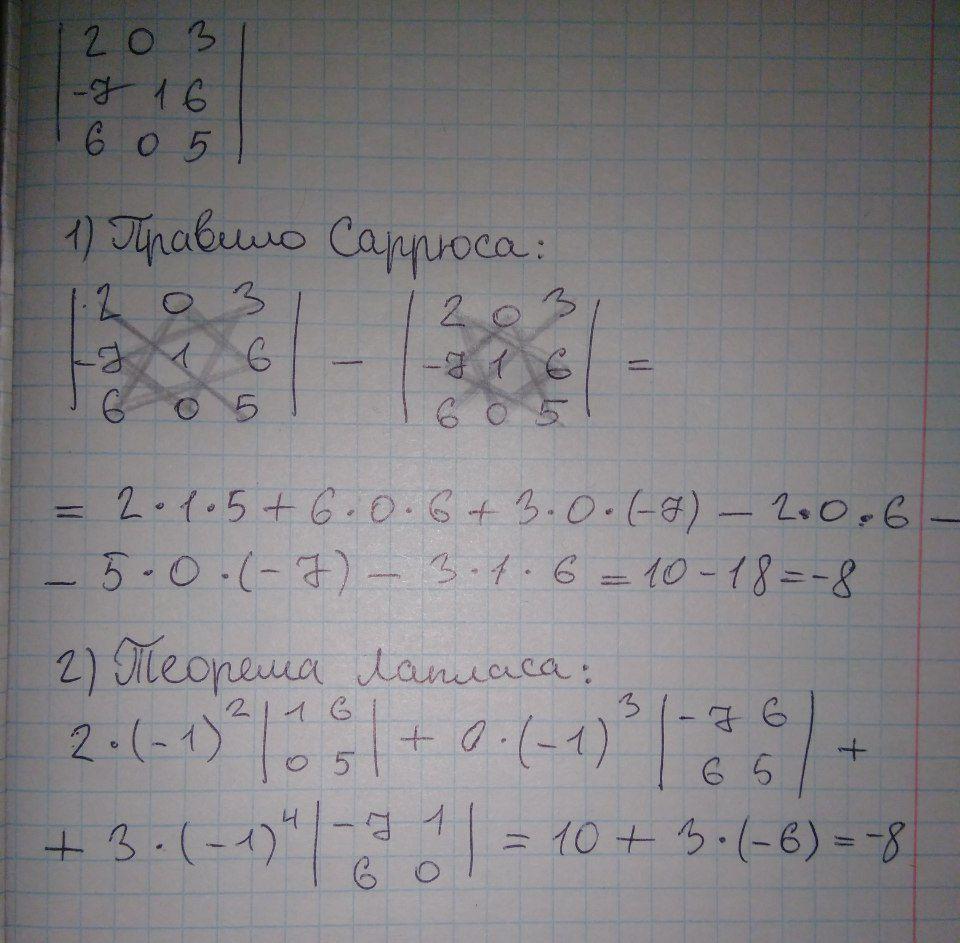 | 2 0 3 |
| -7 1 6 |
| 6 0 5 |
1) Правило Саррюса:
| 2 0 3 | | 2 0 3 |
| -7 1 6 | - | -7 1 6 | =
| 6 0 5 | | 6 0 5 |
= 2·1·5 + 6·0·6 + 3·0·(-7) - 2·0·6 -
- 5·0·(-7) - 3·1·6 = 10 - 18 = -8
2) Теорема Лапласа:
2·(-1)² | 1 6 | + 0·(-1)³ | -7 6 | +
| 0 5 | | 6 5 |
+ 3·(-1)⁴ | -7 1 | = 10 + 3·(-6) = -8
| 6 0 |